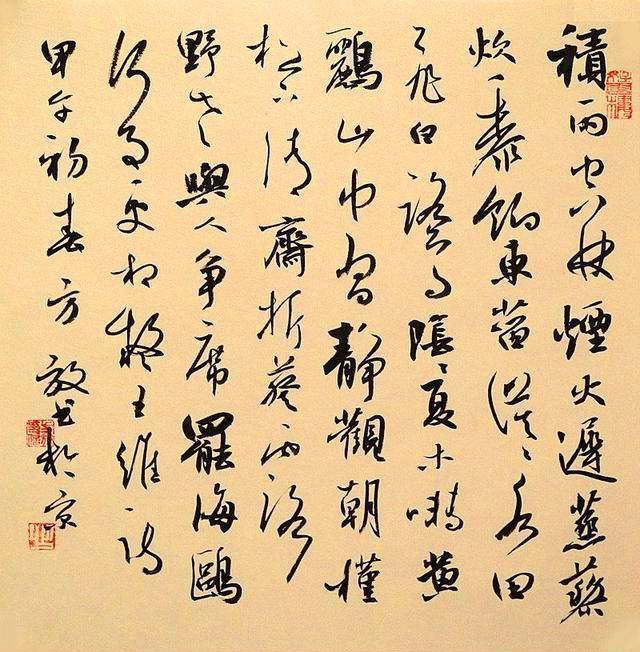 積雨空林煙火遲蒸藜
炊黍餉東菑漠〻水田
飛白鷺陰〻夏木囀黄
鸝山中習靜觀朝槿
松下清齋折葵露
野老與人争席罷海鷗
何事更相疑王維詩
甲午初春方放书於京